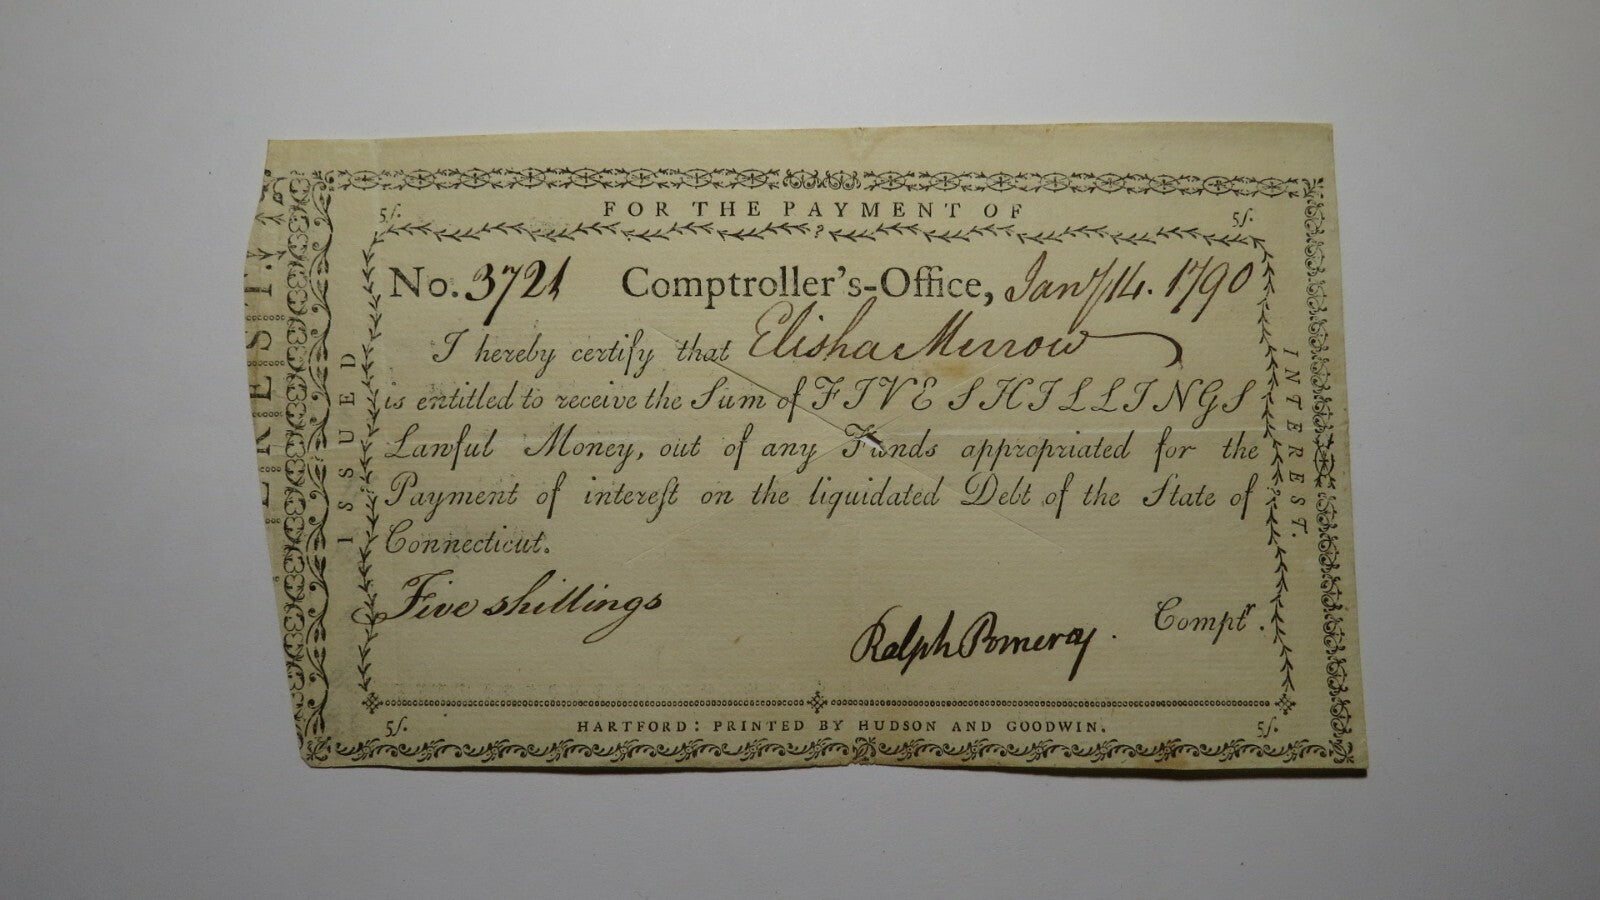 FOR THE PAYMENT OF
5ſ. 5ſ.
No. 3721 Comptroller's-Office, Jany 14. 1790
I hereby certify that Elisha Merrow
is entitled to receive the Sum of FIVE SHILLINGS
Lawful Money, out of any Funds appropriated for the
Payment of intereſt on the liquidated Debt of the State of
Connecticut.
Five shillings
Ralph Pomeroy. Comptr.
5ſ. HARTFORD: PRINTED BY HUDSON AND GOODWIN. 5ſ.
ISSUED
INTEREST.